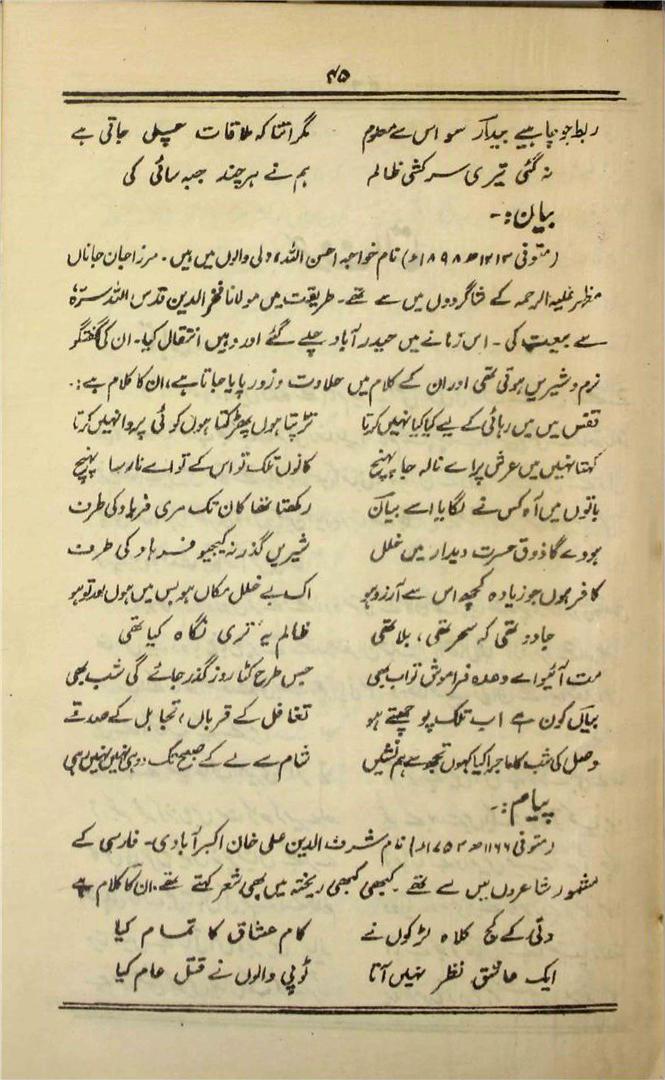 ۴۵
ربط جو چاہیے بیدار سو اس سے معلوم مگر اتنا کہ ملاقات چلی جاتی ہے
نہ گئی تیری سرکشی ظالم ہم نے ہر چند جبہ سائی کی
بیان:۔
(متوفی ۱۲۱۳ھ ۱۸۹۸ء) نام خواجہ احسن اللہ، دلی والوں میں ہیں۔ مرزا جان جاناں
مظہر علیہ الرحمہ کے شاگردوں میں سے تھے۔ طریقت میں مولانا فخر الدین قدس اللہ سرہٗ
سے بیعت کی۔ اس زمانے میں حیدر آباد چلے گئے اور وہیں انتقال کیا۔ ان کی گفتگو
نرم و شیریں ہوتی تھی اور ان کے کلام میں حلاوت و زور پایا جاتا ہے، ان کا کلام ہے:۔
قفس میں میں رہائی کے لیے کیا کیا نہیں کرتا تڑپتا ہوں پھڑکتا ہوں کوئی پروا نہیں کرتا
کہتا نہیں میں عرش پر اے نالہ جا پہنچ کانوں تلک تو اس کے تو اے نارسا پہنچ
باتوں میں آہ کس نے لگایا اے بیاں رکھتا تھا کان تک مری فریاد کی طرف
ہووے گا ذوق حسرت دیدار میں خلل شیریں گذر نہ کیجیو فرہاد کی طرف
کافر ہوں جو زیادہ کچھ اس سے آرزو ہو اک بے خلل مکاں ہو بس میں ہوں اور تو ہو
جادو تھی کہ سحر تھی، بلا تھی ظالم یہ تری نگاہ کیا تھی
مت آئیو اے وعدہ فراموش تو اب بھی جس طرح کٹا روز گذر جائے گی شب بھی
بیاں کون ہے اب تلک پوچھتے ہو تغافل کے قرباں، تجاہل کے صدقے
وصل کی شب کا ماجرا کیا کہوں تجھ سے ہم نشیں شام سے لے کے صبح تک دوہی نہیں نہیں رہی
پیام:۔
(متوفی ۱۱۶۶ھ ۱۷۵۲ء) نام شرف الدین علی خان اکبر آبادی۔ فارسی کے
مشہور شاعروں میں سے تھے۔ کبھی کبھی ریختہ میں بھی شعر کہتے تھے۔ ان کا کلام ہے
دلی کے کج کلاہ لڑکوں نے کام عشاق کا تمام کیا
ایک عاشق نظر نہیں آتا ٹوپی والوں نے قتل عام کیا